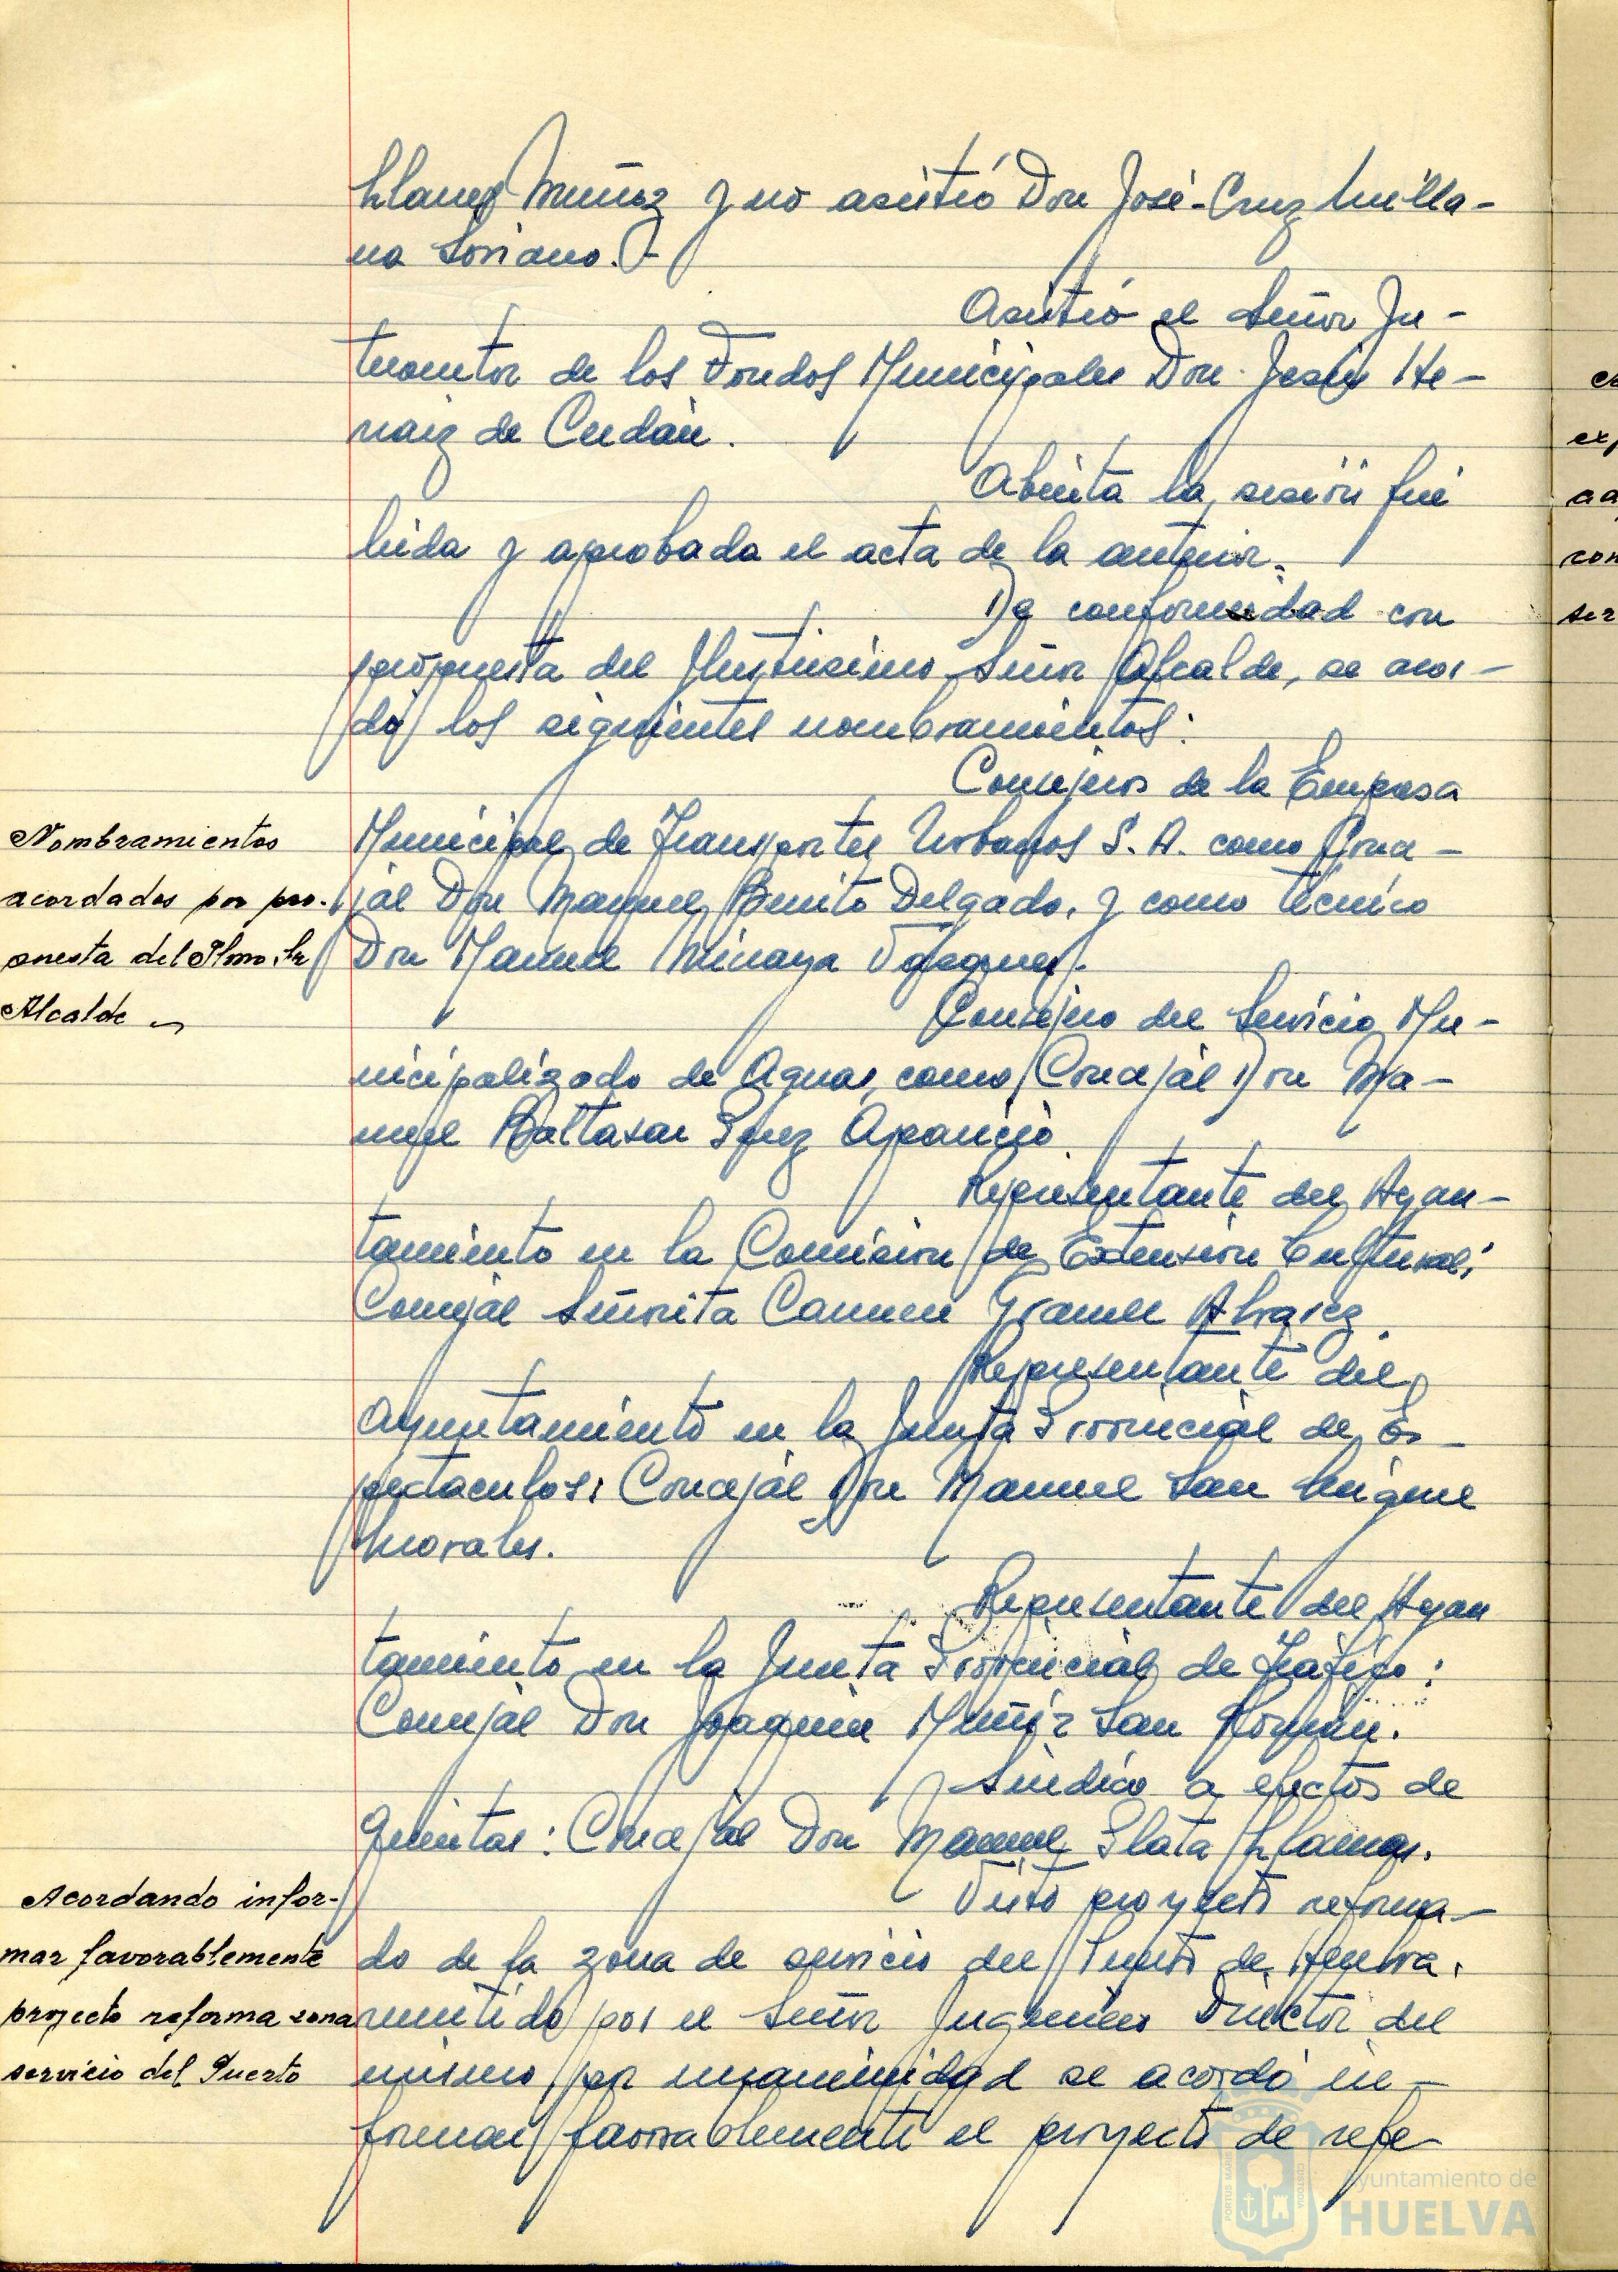 Llanes Muñoz y no asistió Don José-Cruz Milla-
na Soriano.-
Asistió el Señor In-
terventor de los Fondos Municipales Don Jesús He-
rnaiz de Cerdán.
Abierta la sesión fué
leida y aprobada el acta de la anterior.
De conformidad con
propuesta del Ilustrisimo Señor Alcalde, se acor-
dó los siguientes nombramientos:
Consejeros de la Empresa
Nombramientos
acordados por pro-
puesta del Ilmo. Sr
Alcalde
Municipal de Transportes Urbanos S. A. como Conce-
jal Don Manuel Benito Delgado, y como técnico
Don Manuel Minaya
Consejero del Servicio Mu-
nicipalizado de Aguas, como Concejal Don Ma-
nuel Baltasar Aparicio
Representante del Ayun-
tamiento en la Comision de Extension Cultural;
Concejal Señorita Carmen
Representante del
Ayuntamiento en la Junta Provincial de Es-
pectaculos: Concejal Don Manuel San Miguel
Morales.
Representante del Ayun
tamiento en la Junta Provincial de Tráfico:
Concejal Don Joaquin Muñiz San Román.
Sindico a efectos de
Quintas: Concejal Don Manuel Plata Llamas.
Acordando infor-
mar favorablemente
proyecto reforma zona
servicio del Puerto
Visto proyecto reforma-
do de la zona de servicio del Puerto de Huelva,
remitido por el Señor Ingeniero Director del
mismo, por unanimidad se acordó in-
formar favorablemente el proyecto de refe-
ex
aa
con
ser
PORTUS MARIS
CUSTODIA
Ayuntamiento de
HUELVA